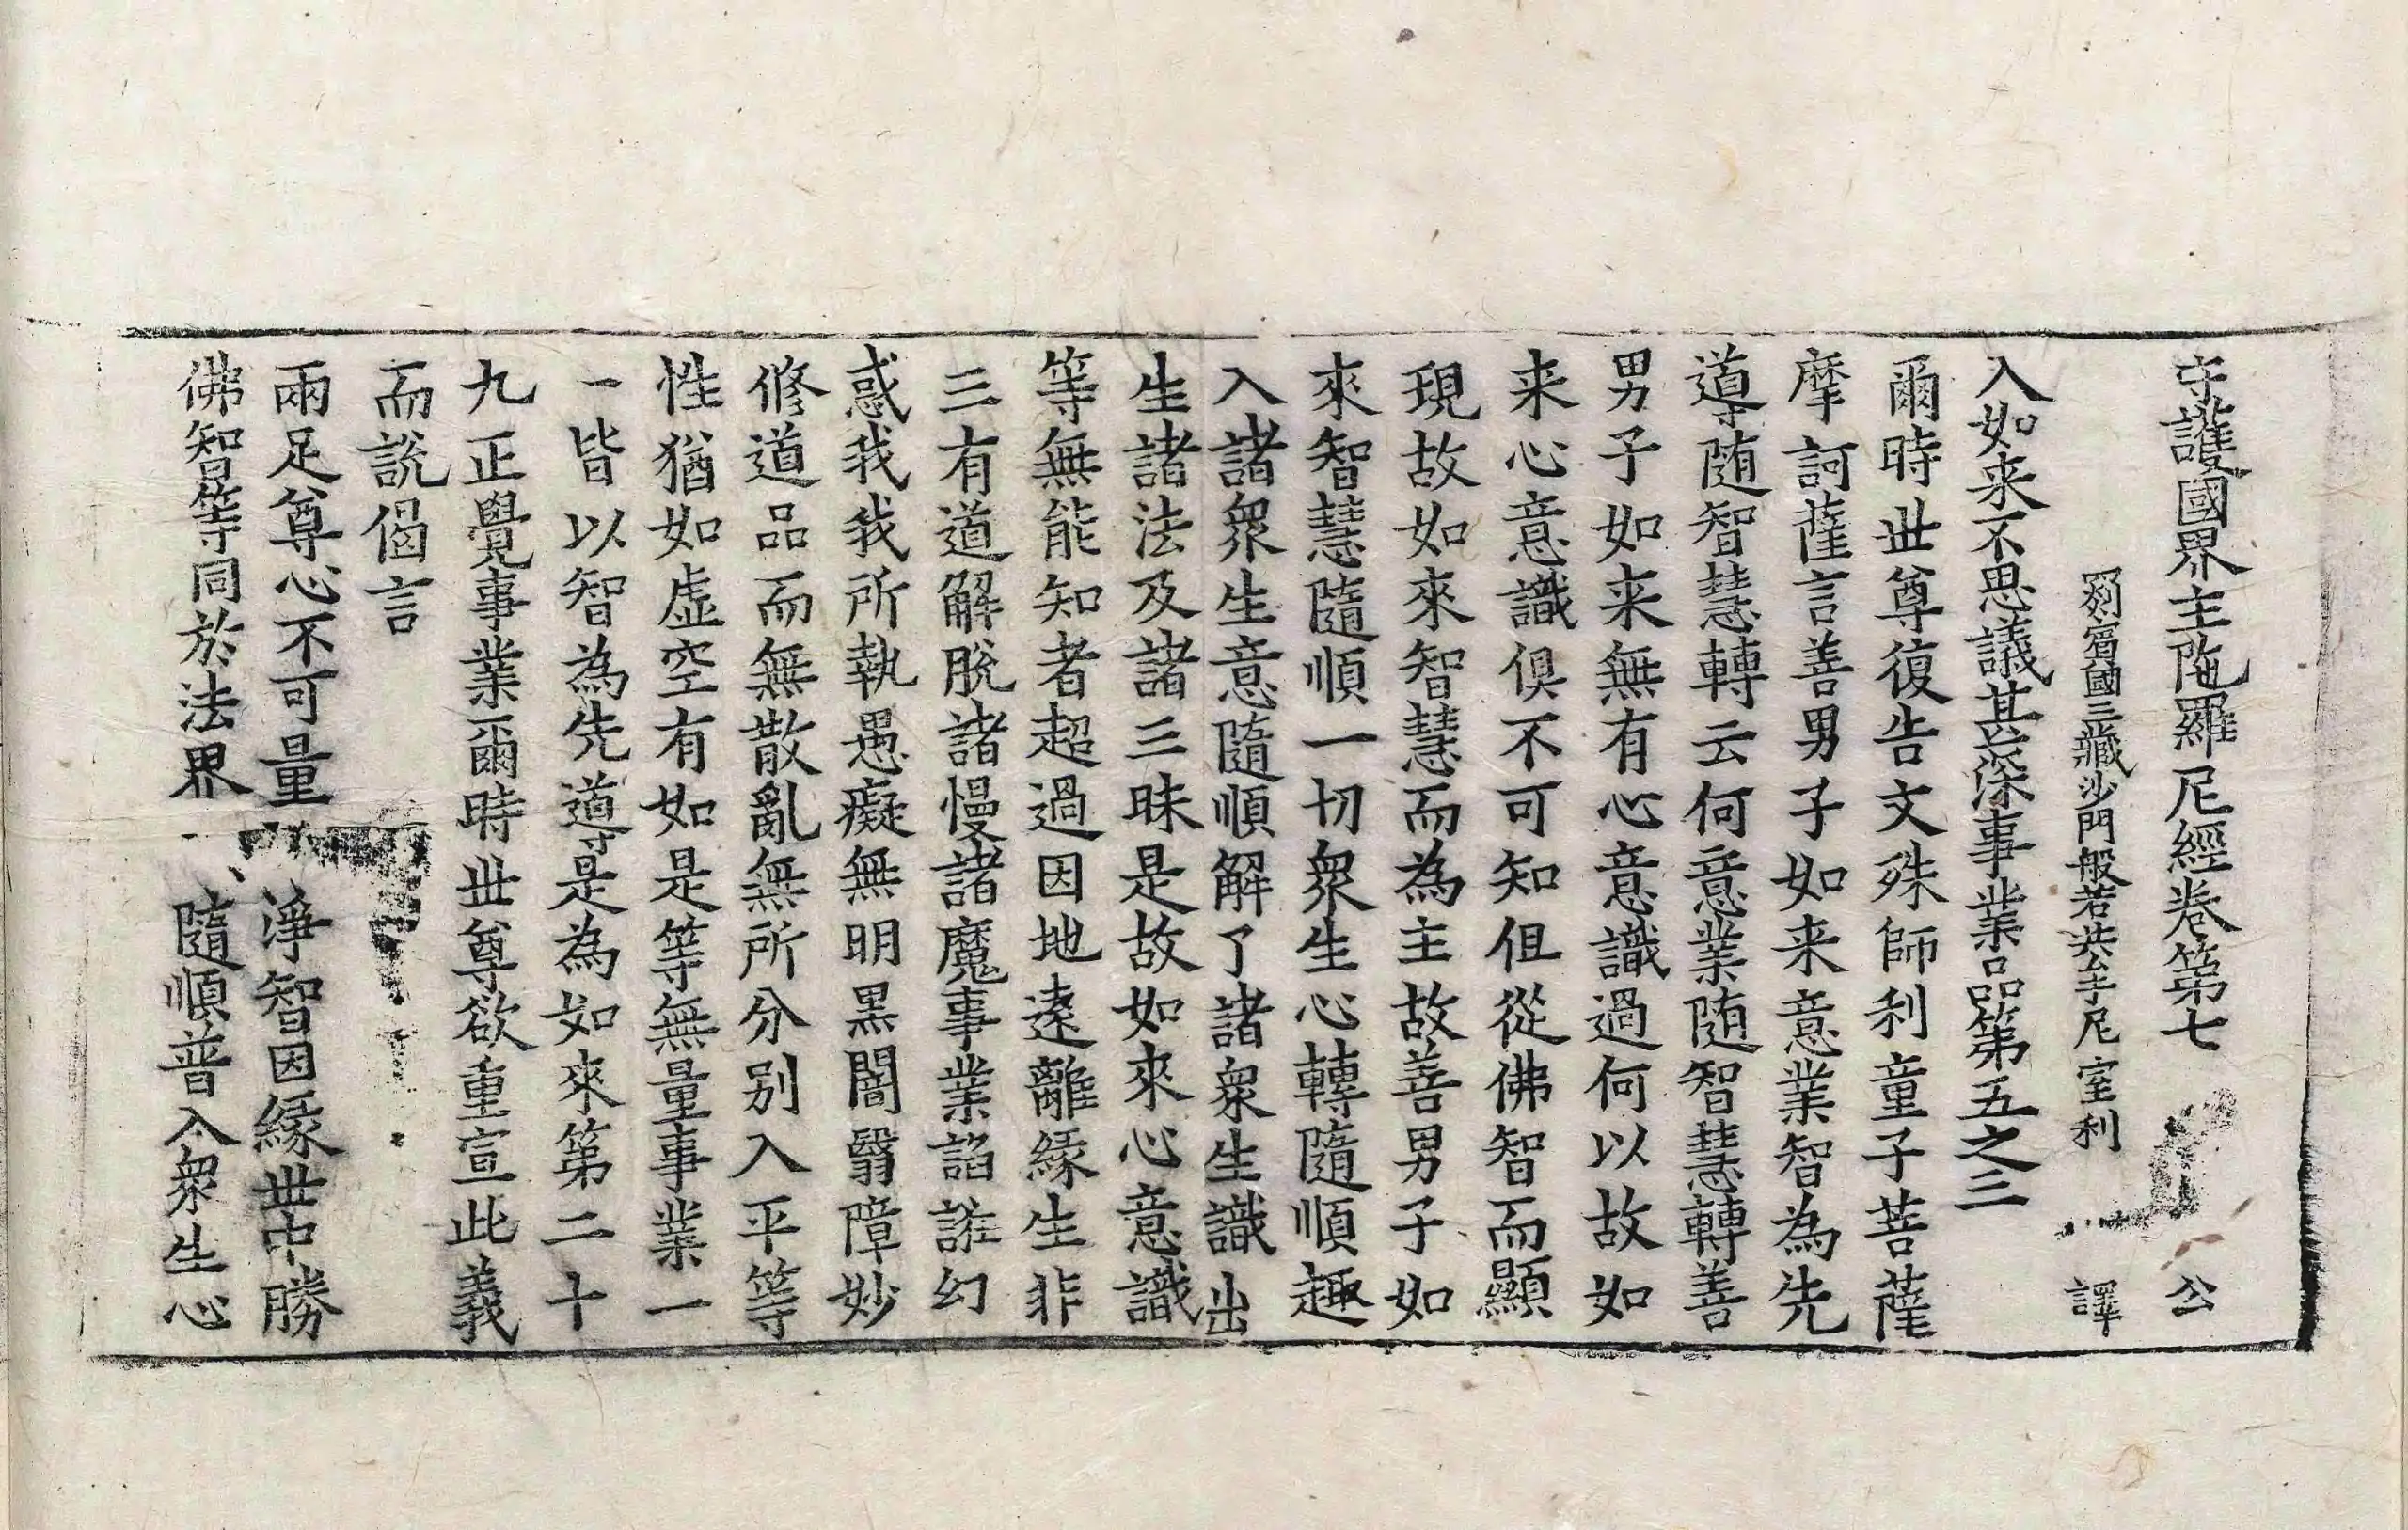 守護國界主陁羅尼經卷第七 公
罽賓國三藏沙門般若共牟尼室利 譯
入如来不思議甚深事業品第五之三
爾時世尊復告文殊師利童子菩薩
摩訶薩言善男子如来意業智為先
導随智慧轉云何意業随智慧轉善
男子如来無有心意識過何以故如
来心意識俱不可知但從佛智而顯
現故如來智慧而為主故善男子如
來智慧隨順一切衆生心轉隨順趣
入諸衆生意隨順解了諸衆生識出
生諸法及諸三昧是故如來心意識
等無能知者超過因地遠離緣生非
三有道解脫諸慢諸魔事業諂誑幻
惑我我所執愚癡無明黑闇翳障妙
修道品而無散亂無所分別入平等
性猶如虛空有如是等無量事業一
一皆以智為先導是為如來第二十
九正覺事業爾時世尊欲重宣此義
而說偈言
兩足尊心不可量 淨智因緣世中勝
佛智等同於法界 隨順普入衆生心